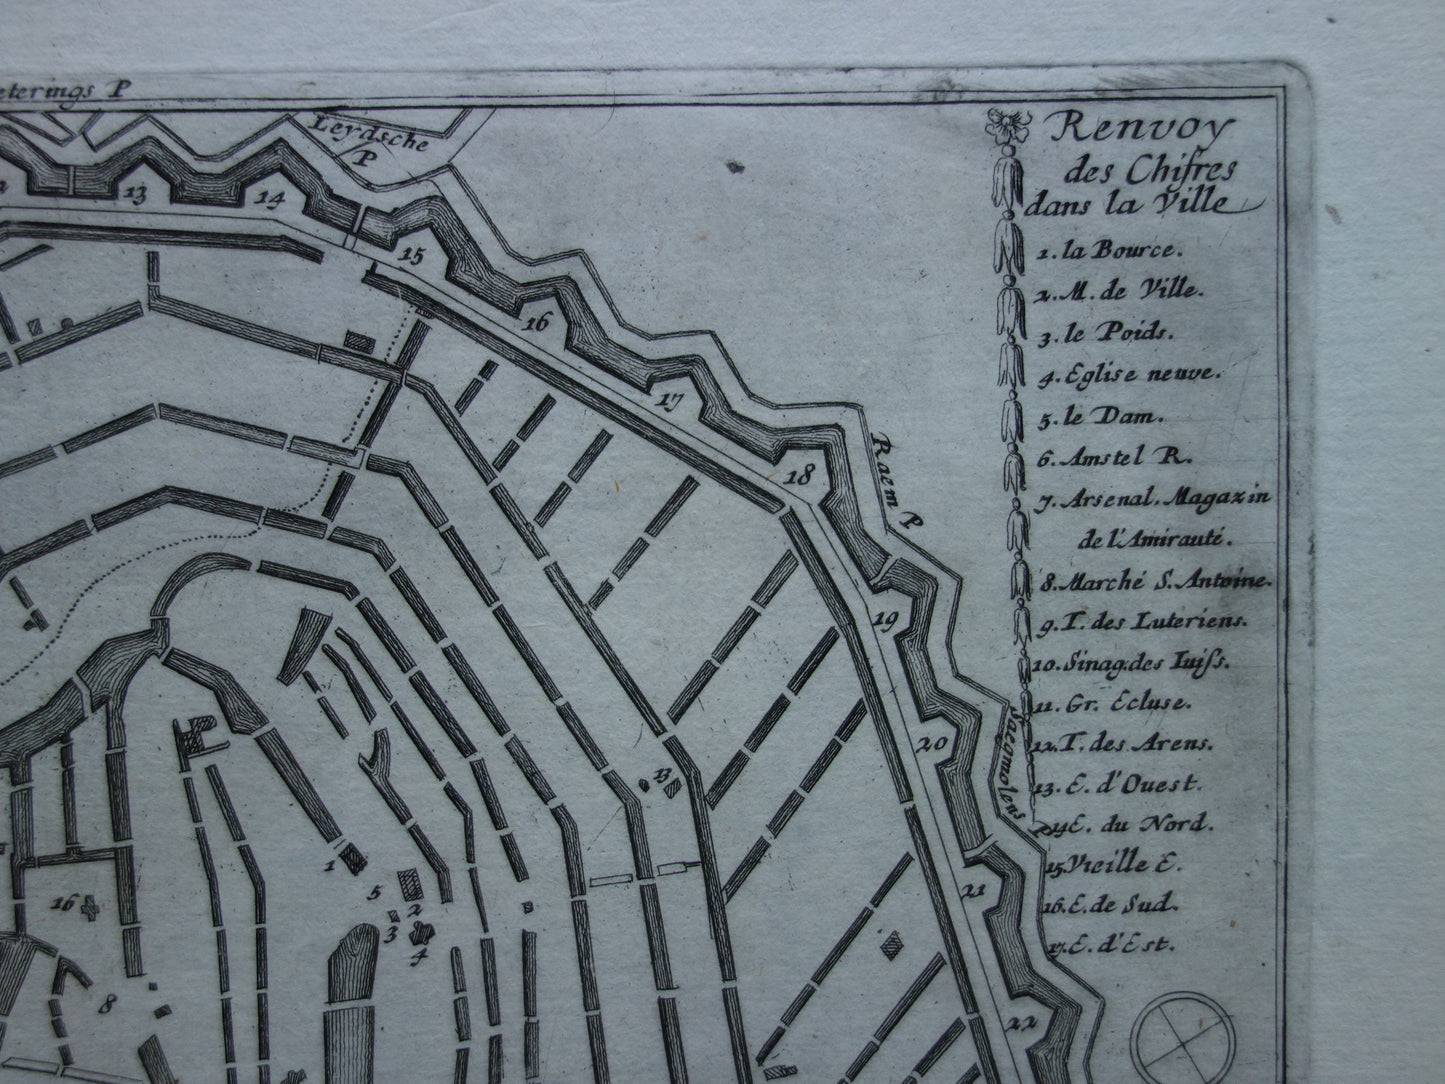 eterings P
Leydsche
P
13
14
15
16
17
18
19
20
21
22
Raem P
Saegmolens P
13
1
5
2
3
4
16
8
Renvoy
des Chifres
dans la Ville
1. la Bource.
2. M. de Ville.
3. le Poids.
4. Eglise neuve.
5. le Dam.
6. Amstel R.
7. Arsenal. Magazin
de l'Amirauté.
8. Marché S. Antoine.
9. T. des Luteriens.
10. Sinag. des Iuifs.
11. Gr. Ecluse.
12. T. des Arens.
13. E. d'Ouest.
14 E. du Nord.
15 Vieille E.
16. E. de Sud.
17. E. d'Est.